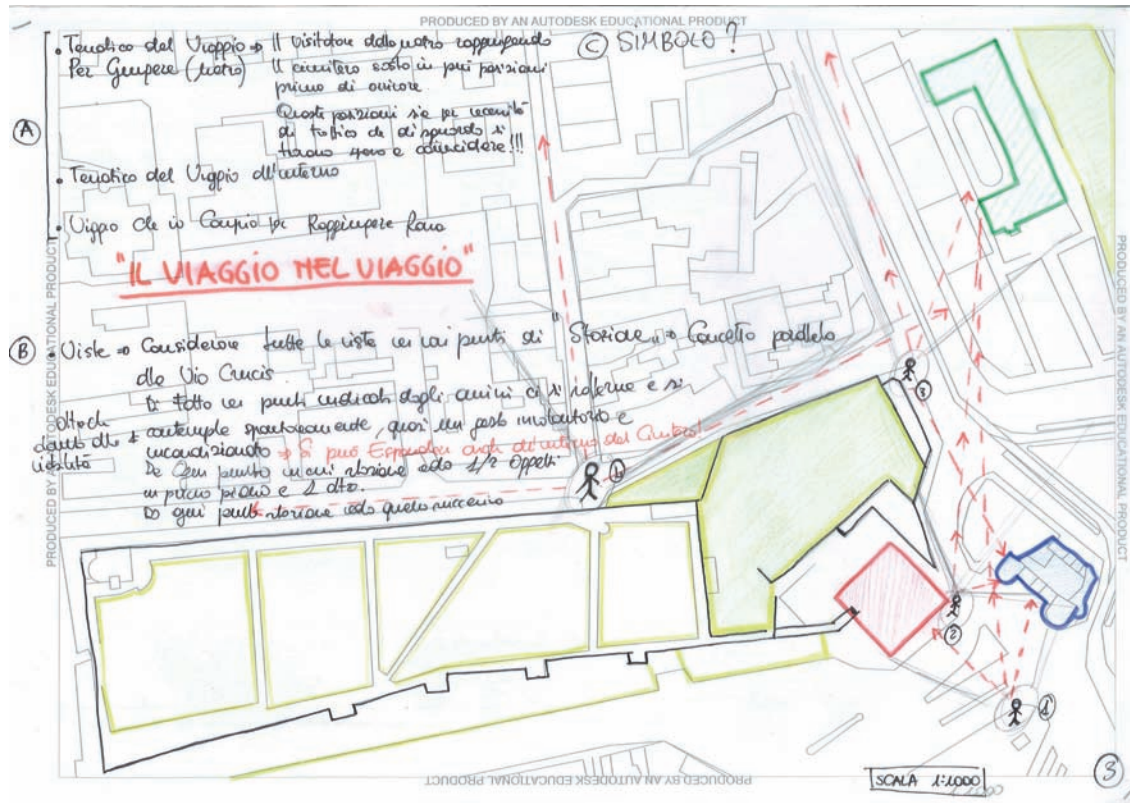 PRODUCED BY AN AUTODESK EDUCATIONAL PRODUCT
A
• Tematica del Viaggio ⇒ Il visitatore dalla metro raggiungendo
Per Giungere (metro) Il cimitero sosta in più posizioni
prima di arrivare.
Queste posizioni sia per necessità
di traffico che di sguardo si
trovano a coincidere!!!
• Tematica del Viaggio all'interno
• Viaggio che io Compio per Raggiungere
"IL VIAGGIO NEL VIAGGIO"
C SIMBOLO?
B • Viste ⇒ Considerare tutte le viste nei vari punti di "Stazione" ⇒ Concetto parallelo
alla Via Crucis
Di fatto nei punti indicati dagli omini ci si sofferma e si
contempla spontaneamente, quasi un gesto involontario e
incondizionato ⇒ Si può Espandere anche all'interno del Cimitero!
Da Ogni punto in cui stazione vedo 1/2 oggetti
in primo piano e 1 alto.
Da ogni punto stazione vedo quello successivo
4
3
2
1
SCALA 1:1000
3
PRODUCED BY AN AUTODESK EDUCATIONAL PRODUCT
PRODUCED BY AN AUTODESK EDUCATIONAL PRODUCT
PRODUCED BY AN AUTODESK EDUCATIONAL PRODUCT